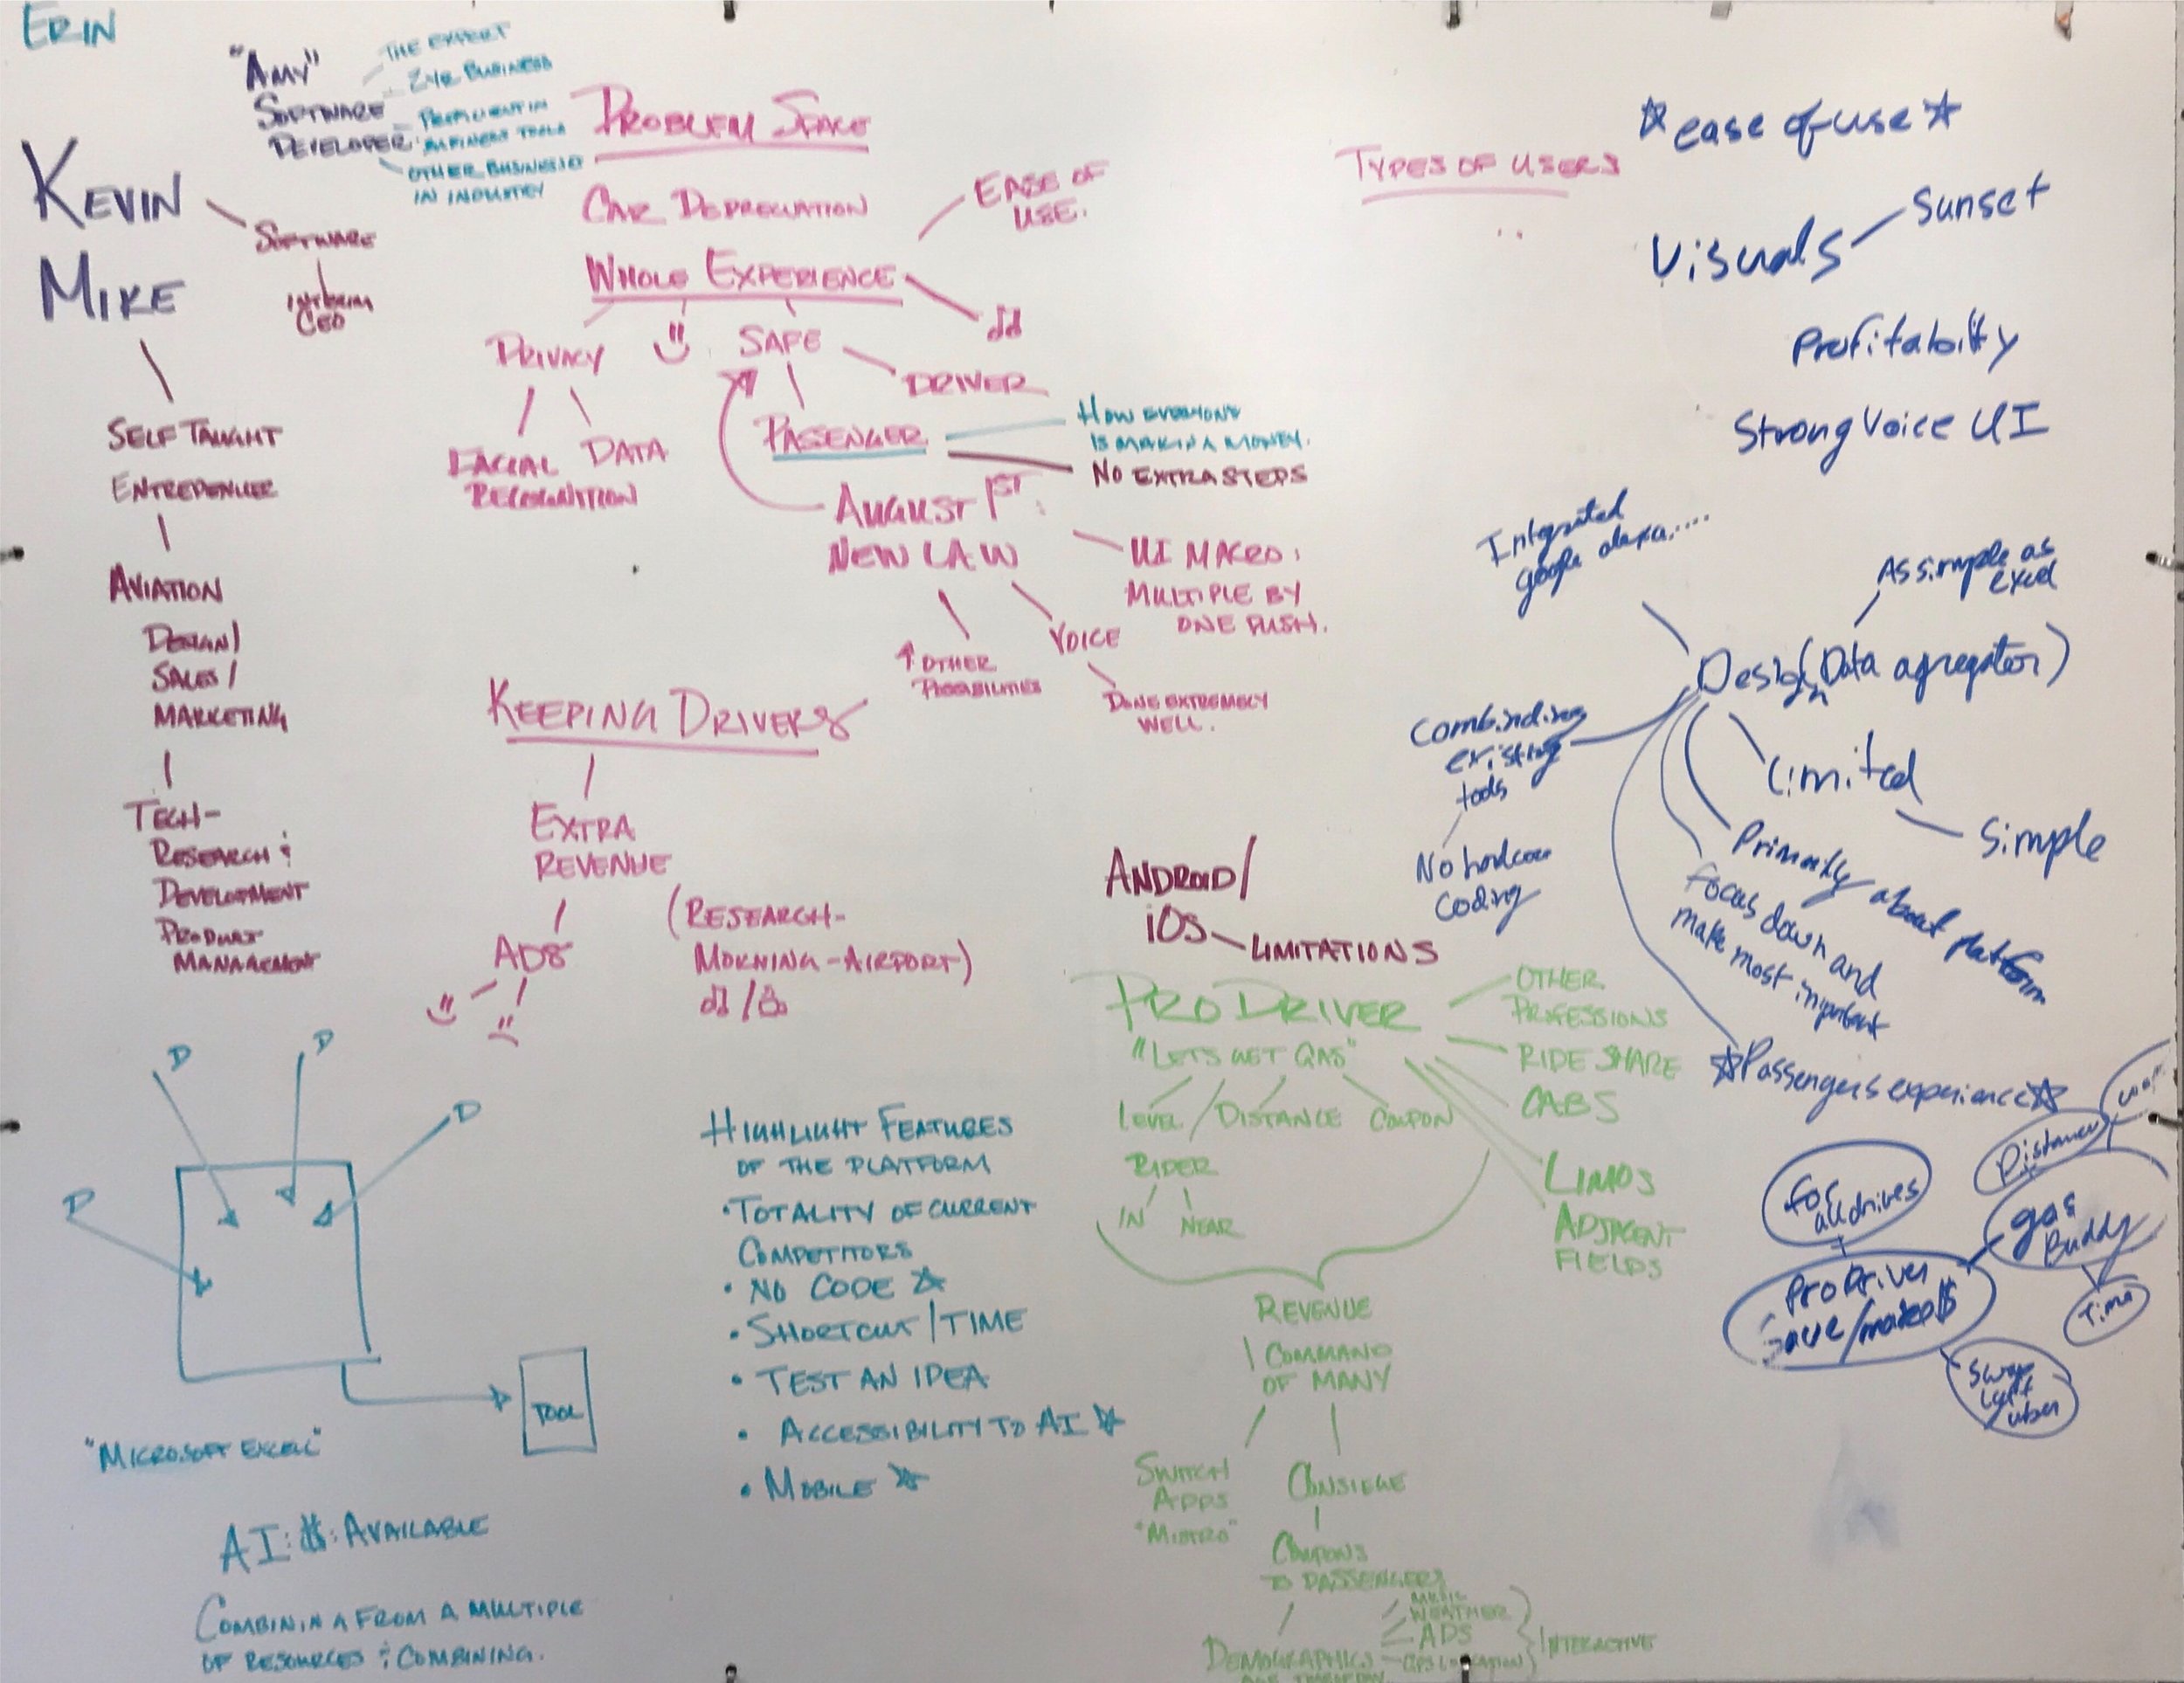 ERIN
"AMY"
SOFTWARE
DEVELOPER
THE EXPERT
BUSINESS
PROFICIENT IN
BUSINESS TOOLS
OTHER BUSINESSES
IN INDUSTRY
KEVIN
SOFTWARE
INTERIM
CEO
MIKE
SELF TAUGHT
ENTREPENUER
AVIATION
DESIGN/
SALES/
MARKETING
TECH-
RESEARCH &
DEVELOPMENT
PRODUCT
MANAGEMENT
PROBLEM SPACE
CAR DEPRECIATION
WHOLE EXPERIENCE
EASE OF
USE.
PRIVACY
SAFE
DRIVER
FACIAL
RECOGNITION
DATA
PASSENGER
HOW EVERYONE
IS MAKING MONEY.
NO EXTRA STEPS
AUGUST 1ST:
NEW LAW
UI MACRO:
MULTIPLE BY
ONE PUSH.
↑ OTHER
POSSIBILITIES
VOICE
DONE EXTREMELY
WELL.
KEEPING DRIVERS
EXTRA
REVENUE
ADS
(RESEARCH-
MORNING-AIRPORT)
TYPES OF USERS
☆ ease of use ☆
Visuals
Sunset
Profitability
Strong Voice UI
Integrated
google alexa....
As simple as
excel
Design (Data agregator)
Combinding
existing
tools
No hardcore
coding
Limited
Simple
Primarily about platform
Focus down and
make most important
☆Passengers experience☆
ANDROID/
iOS
LIMITATIONS
PRO DRIVER
"LETS GET GAS"
OTHER
PROFESSIONS
RIDE SHARE
CABS
LIMOS
ADJACENT
FIELDS
LEVEL / DISTANCE
COUPON
RIDER
IN
NEAR
REVENUE
1 COMMAND
OF MANY
SWITCH
APPS
CONSIEGE
COUPONS
TO PASSENGERS
MUSIC
WEATHER
ADS
GPS LOCATION
INTERACTIVE
DEMOGRAPHICS
For
all drives
Distance
gas
Buddy
Time
Pro Driver
Save/make $
Swap
Lyft
uber
D
D
D
D
TOOL
"MICROSOFT EXCEL"
AI: $: AVAILABLE
COMBINING FROM A MULTIPLE
OF RESOURCES & COMBINING.
HIGHLIGHT FEATURES
OF THE PLATFORM
• TOTALITY OF CURRENT
COMPETITORS
• NO CODE ☆
• SHORTCUT/TIME
• TEST AN IDEA
• ACCESSIBILITY TO AI ☆
• MOBILE ☆